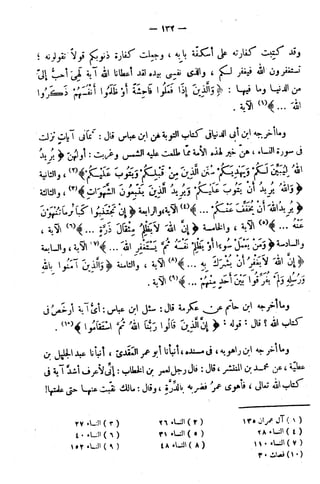 — ١٣٢ —
وقد كتبت كفارته على أسكفة بابه ، وجعلت كفارة ذنوبكم قولاً تقولونه ؛
تستغفرون الله فيغفر لكم ، والذى نفسى بيده لقد أعطانا الله آية لهى أحب إلىّ
من الدنيا وما فيها : ﴿ وَالَّذِينَ إِذَا فَعَلُوا فَاحِشَةً أَوْ ظَلَمُوا أَنفُسَهُمْ ذَكَرُوا
اللهَ ... ﴾(١) الآية .
وما أخرجه ابن أبى الدنيا فى كتاب التوبة عن ابن عباس قال : ثمانى آيات نزلت
فى سورة النساء ، هن خير لهذه الأمة مما طلعت عليه الشمس وغربت : أولهن ﴿ يُرِيدُ
اللهُ لِيُبَيِّنَ لَكُمْ وَيَهْدِيَكُمْ سُنَنَ الَّذِينَ مِن قَبْلِكُمْ وَيَتُوبَ عَلَيْكُمْ ﴾(٢) ، والثانية
﴿ وَاللهُ يُرِيدُ أَن يَتُوبَ عَلَيْكُمْ وَيُرِيدُ الَّذِينَ يَتَّبِعُونَ الشَّهَوَاتِ ﴾(٣) ، والثالثة
﴿ يُرِيدُ اللهُ أَن يُخَفِّفَ عَنكُمْ ... ﴾(٤) الآية ، والرابعة ﴿ إِن تَجْتَنِبُوا كَبَائِرَ مَا تُنْهَوْنَ
عَنْهُ ... ﴾(٥) الآية ، والخامسة ﴿ إِنَّ اللهَ لَا يَظْلِمُ مِثْقَالَ ذَرَّةٍ ... ﴾(٦) الآية ،
والسادسة ﴿ وَمَن يَعْمَلْ سُوءًا أَوْ يَظْلِمْ نَفْسَهُ ثُمَّ يَسْتَغْفِرِ اللهَ ... ﴾(٧) الآية ، والسابعة
﴿ إِنَّ اللهَ لَا يَغْفِرُ أَن يُشْرَكَ بِهِ ... ﴾(٨) الآية ، والثامنة ﴿ وَالَّذِينَ آمَنُوا بِاللهِ
وَرُسُلِهِ وَلَمْ يُفَرِّقُوا بَيْنَ أَحَدٍ مِّنْهُمْ ... ﴾(٩) الآية .
وما أخرجه ابن أبى حاتم عن عكرمة قال : سئل ابن عباس : أىّ آية أرخص فى
كتاب الله ؟ قال : قوله : ﴿ إِنَّ الَّذِينَ قَالُوا رَبُّنَا اللهُ ثُمَّ اسْتَقَامُوا ﴾(١٠) .
وما أخرجه ابن راهويه ، فى مسنده ، أنبأنا أبو عمر العقدىّ ، أنبأنا عبد الجليل بن
عطية ، عن محمد بن المنتشر ، قال : قال رجل لعمر بن الخطاب : إنى لأعرف أشدّ آية فى
كتاب الله تعالى ، فأهوى عمر فضربه بالدِّرَّة ، وقال : مالك نقبت عنها حتى علمتها!
(١) آل عمران ١٣٥ (٢) النساء ٢٦ (٣) النساء ٢٧
(٤) النساء ٢٨ (٥) النساء ٣١ (٦) النساء ٤٠
(٧) النساء ١١٠ (٨) النساء ٤٨ (٩) النساء ١٥٢
(١٠) فصلت ٣٠